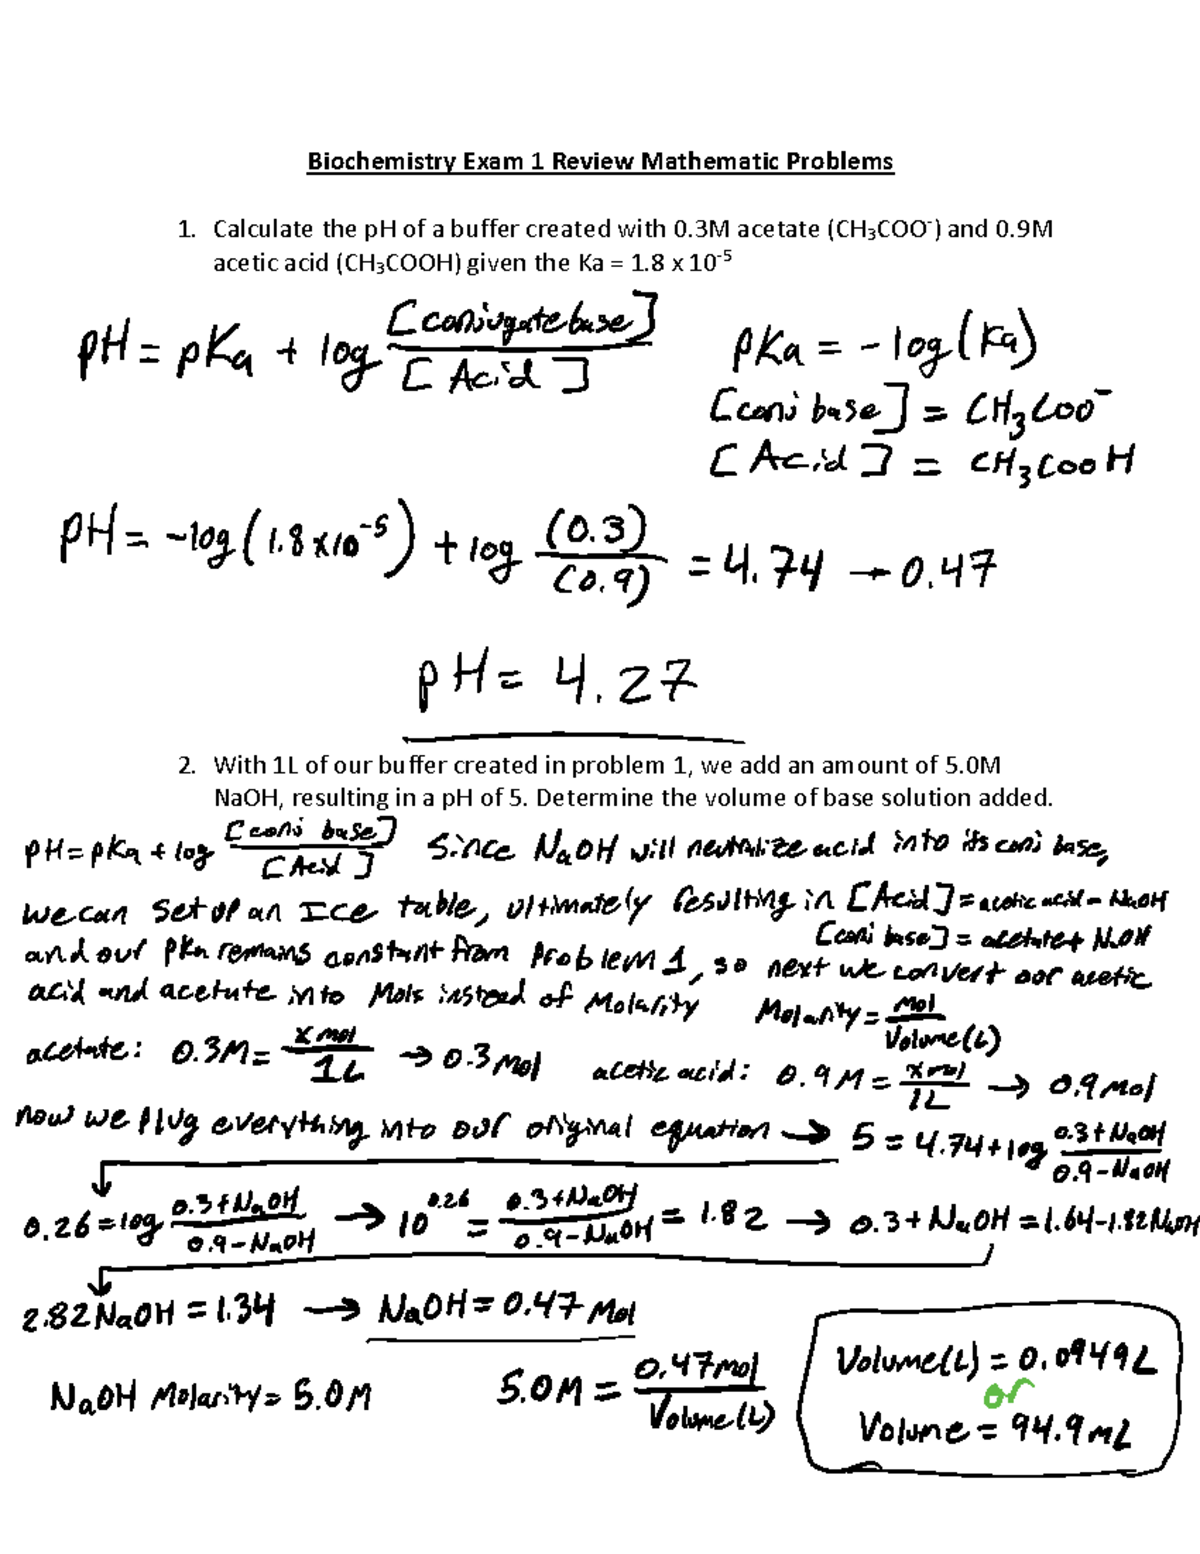 Biochemistry Exam 1 Review Mathematic Problems
1. Calculate the pH of a buffer created with 0.3M acetate (CH₃COO⁻) and 0.9M
acetic acid (CH₃COOH) given the Ka = 1.8 x 10⁻⁵
pH = pKa + log [conjugate base] / [Acid]
pKa = -log(Ka)
[conj base] = CH₃COO⁻
[Acid] = CH₃COOH
pH = -log(1.8x10⁻⁵) + log (0.3) / (0.9) = 4.74 - 0.47
pH = 4.27
2. With 1L of our buffer created in problem 1, we add an amount of 5.0M
NaOH, resulting in a pH of 5. Determine the volume of base solution added.
pH = pKa + log [conj base] / [Acid] Since NaOH will neutralize acid into its conj base,
we can set up an Ice table, ultimately resulting in [Acid] = acetic acid - NaOH
[conj base] = acetate + NaOH
and our pKa remains constant from Problem 1, so next we convert our acetic
acid and acetate into Mols instead of Molarity Molarity = Mol / Volume(L)
acetate: 0.3M = x mol / 1L → 0.3 mol acetic acid: 0.9M = x mol / 1L → 0.9 mol
now we plug everything into our original equation → 5 = 4.74 + log 0.3 + NaOH / 0.9 - NaOH
0.26 = log 0.3 + NaOH / 0.9 - NaOH → 10^0.26 = 0.3 + NaOH / 0.9 - NaOH = 1.82 → 0.3 + NaOH = 1.64 - 1.82 NaOH
2.82 NaOH = 1.34 → NaOH = 0.47 Mol
NaOH Molarity = 5.0M 5.0M = 0.47 mol / Volume(L)
Volume(L) = 0.0949L
or
Volume = 94.9 mL